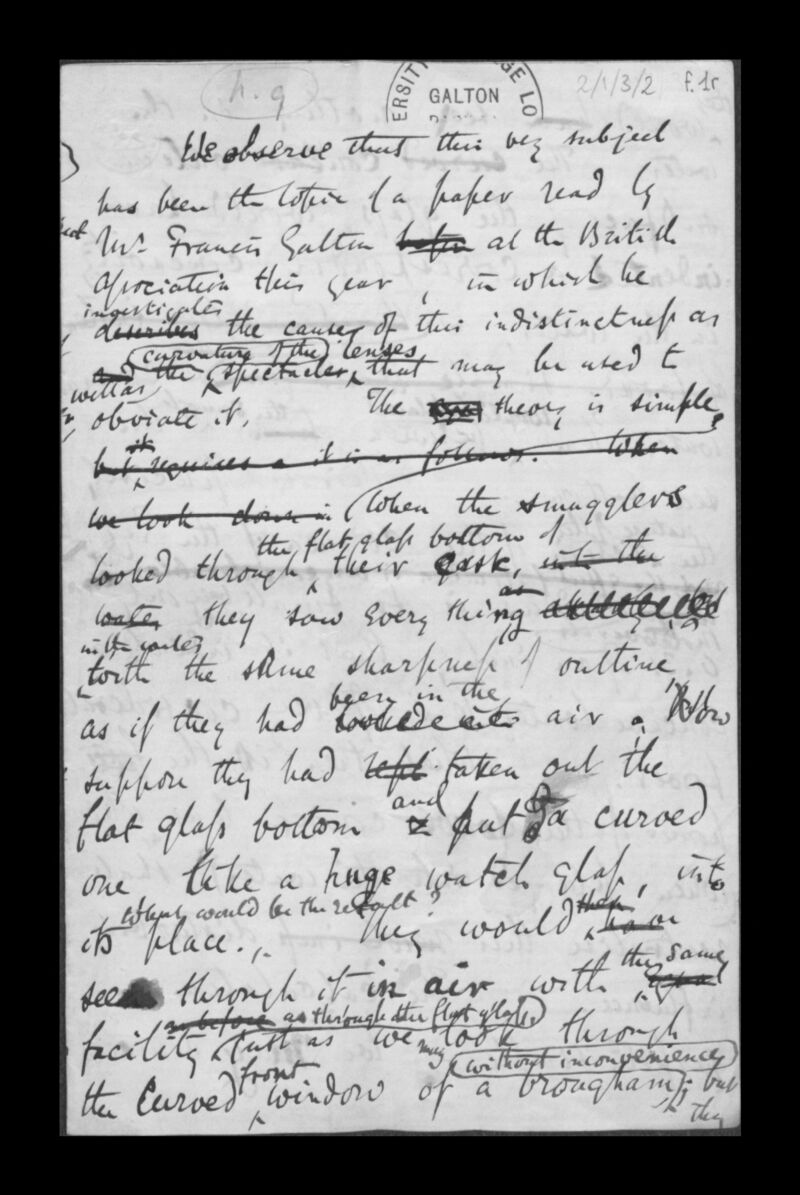 h. 9
ERSITY
GE LO
GALTON
2/1/3/2 f. 1r
We observe that this very subject
has been the topic of a paper read by
Mr. Francis Galton before at the British
Association this year, in which he
investigates
describes the causes of this indistinctness as
curvature of the lenses
and the spectacles, that may be used to
well as
obviate it. The theory is simple,
it
but requires a it is as follows. When
we look down in When the smugglers
the flat glass bottom of
looked through their cask, into the
as
water they saw every thing
in the water
with the same sharpness of outline
been in the
as if they had looked into air. Now
suppose they had taken out the
flat glass bottom and put a curved
one like a huge watch glass, into
What would be the result?
its place. They would then have
the same
seen through it in air with equal
as before as through the flat glass
facility just as we look through
may without inconvenience
front
the curved window of a brougham; but
they